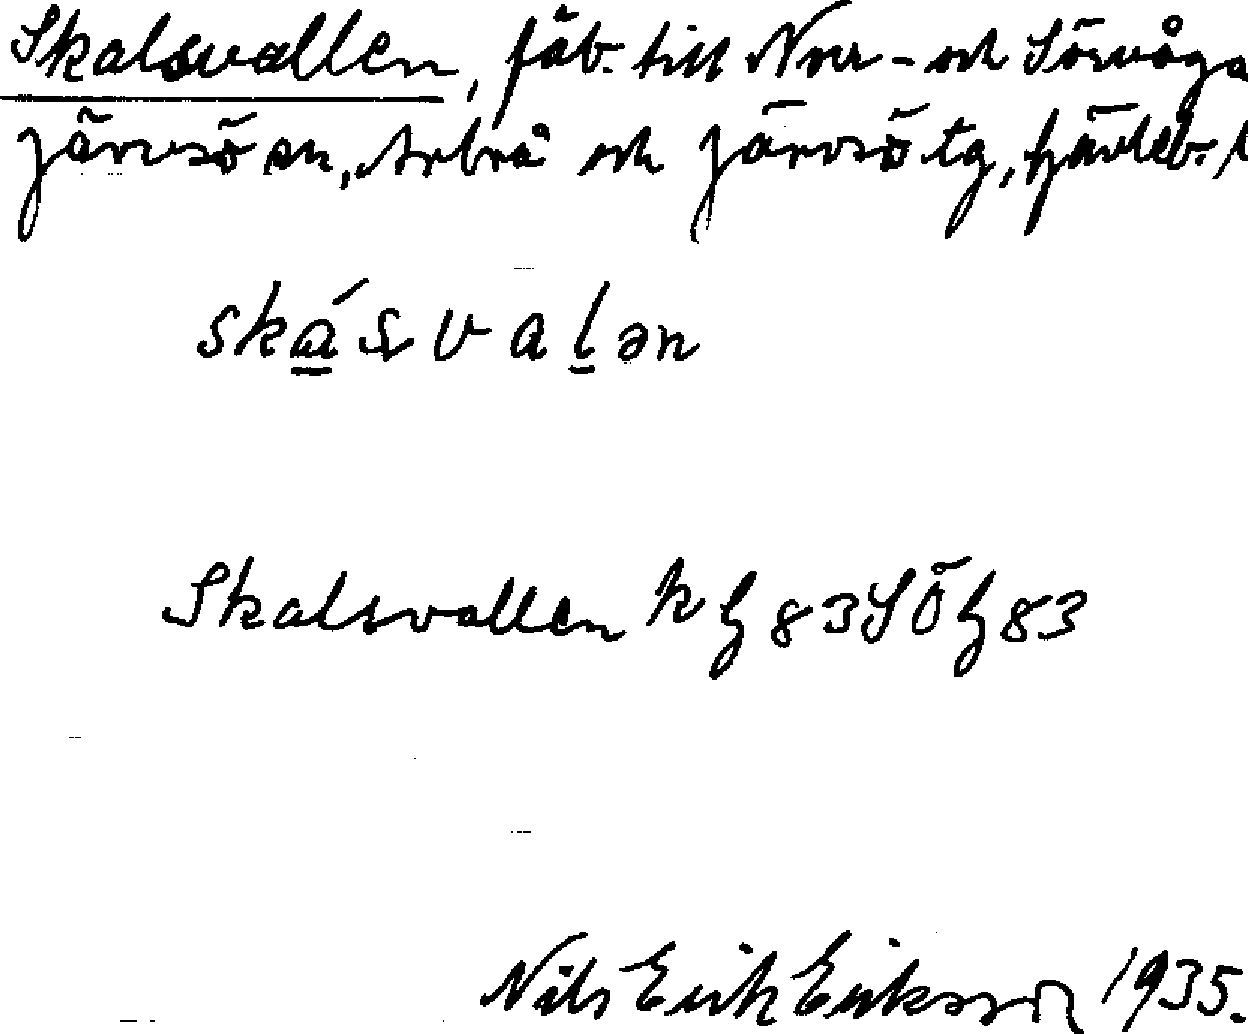 Skalsvallen, fäb. till Norr- och Sörvåga
Järvsö sn, Arbrå och Järvsö tg, Gävleb. l
skásvalən
Skalsvallen k G 83 SÖ G 83
Nils Erik Eriksson 1935.